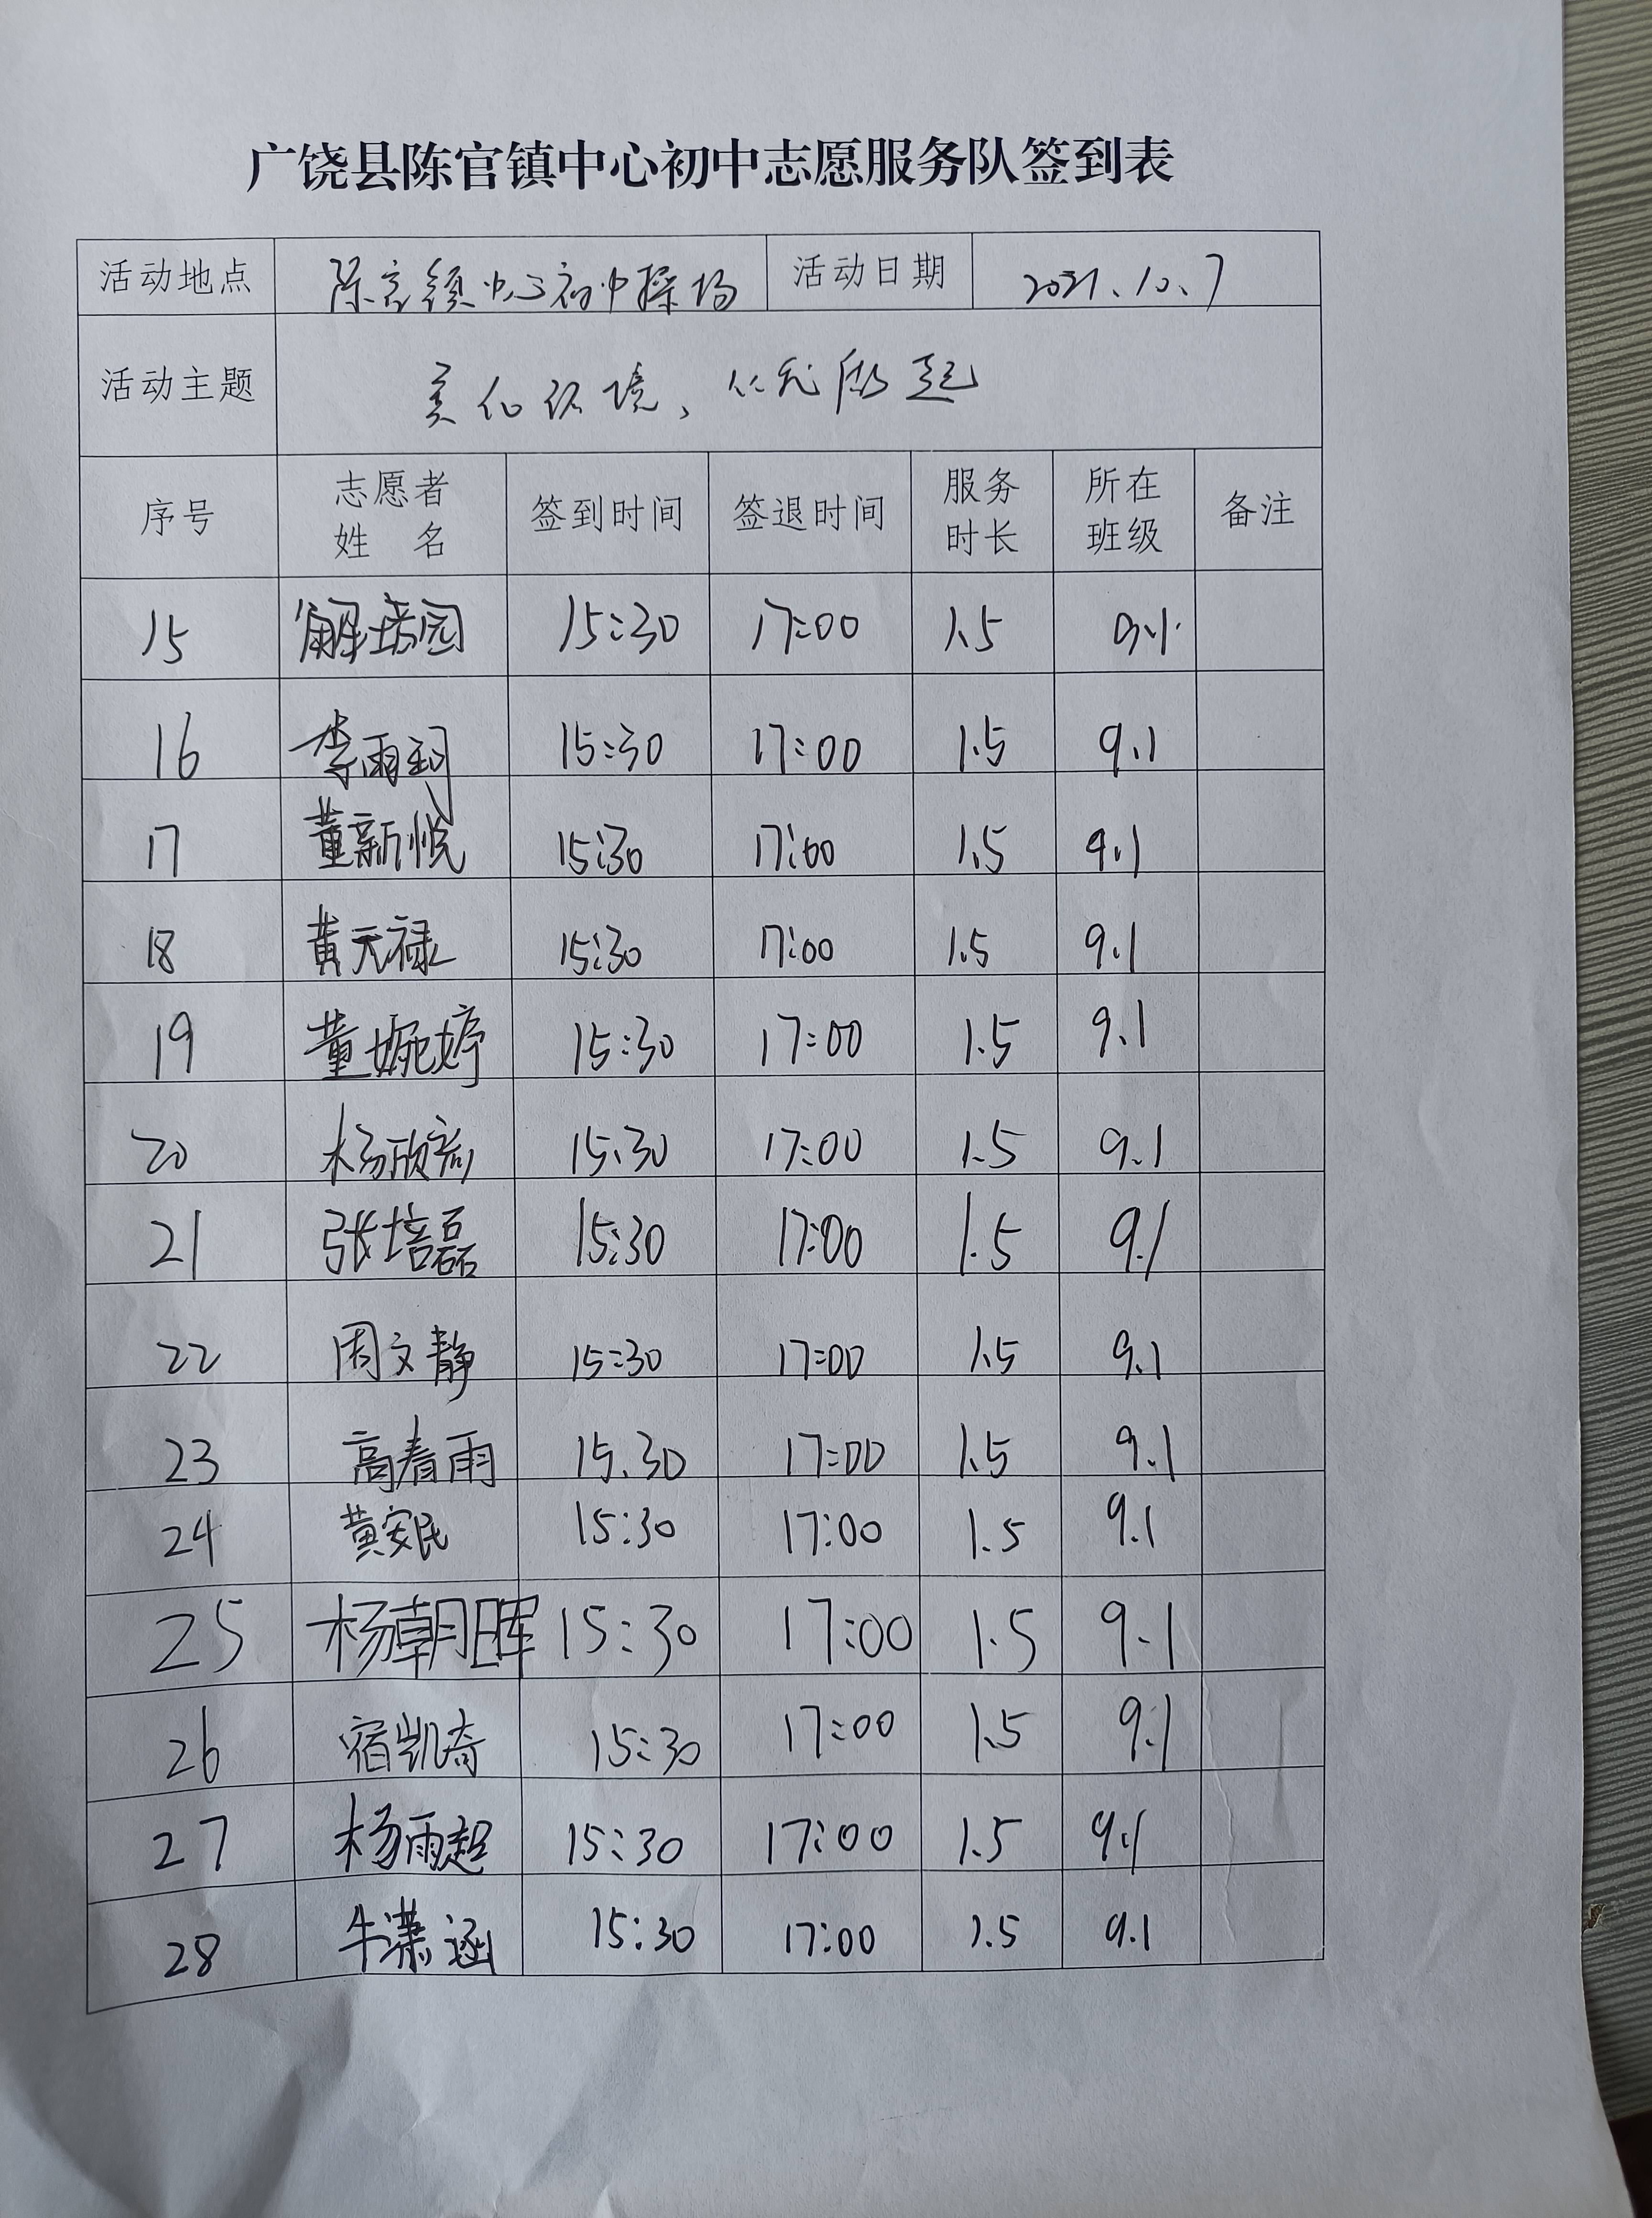 广饶县陈官镇中心初中志愿服务队签到表
活动地点 陈官镇中心初中操场 活动日期 2021.10.7
活动主题 美化环境、从我做起
序号 志愿者姓 名 签到时间 签退时间 服务时长 所在班级 备注
15 解培园 15:30 17:00 1.5 9.1
16 李雨珂 15:30 17:00 1.5 9.1
17 董新悦 15:30 17:00 1.5 9.1
18 黄天禄 15:30 17:00 1.5 9.1
19 董婉婷 15:30 17:00 1.5 9.1
20 杨欣 15:30 17:00 1.5 9.1
21 张培磊 15:30 17:00 1.5 9.1
22 周文静 15:30 17:00 1.5 9.1
23 高春雨 15.30 17:00 1.5 9.1
24 黄安民 15:30 17:00 1.5 9.1
25 杨朝晖 15:30 17:00 1.5 9.1
26 宿凯奇 15:30 17:00 1.5 9.1
27 杨雨超 15:30 17:00 1.5 9.1
28 牛潇涵 15:30 17:00 1.5 9.1